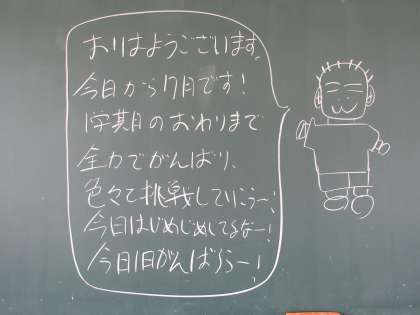 おはようございます。
今日から7月です!
1学期のおわりまで
全力でがんばり、
色々て挑戦していこうー!
今日はじめじめしてるなー!
今日1日がんばろうー!